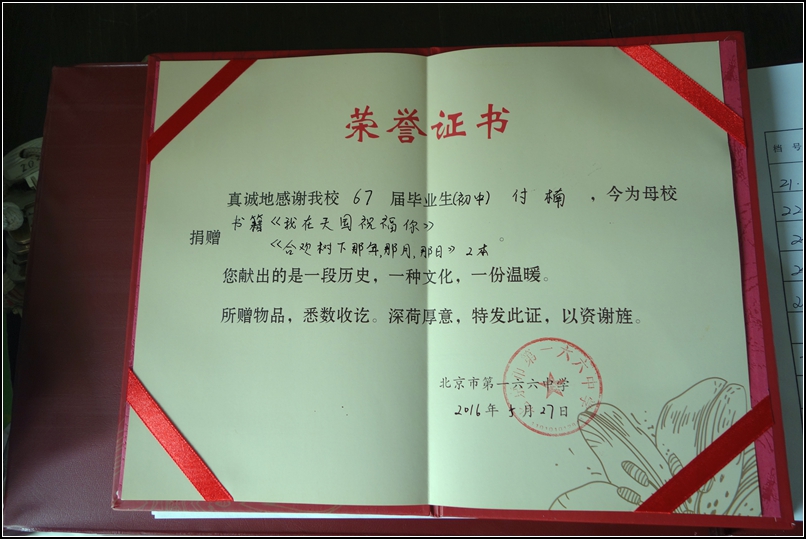 荣誉证书
真诚地感谢我校 67 届毕业生(初中) 付楠 ，今为母校
捐赠 书籍《我在天国祝福你》
《合欢树下那年,那月,那日》2本 。
您献出的是一段历史，一种文化，一份温暖。
所赠物品，悉数收讫。深荷厚意，特发此证，以资谢旌。
北京市第一六六中学
2016年 5月 27日
档号
21-
22
2
2
2